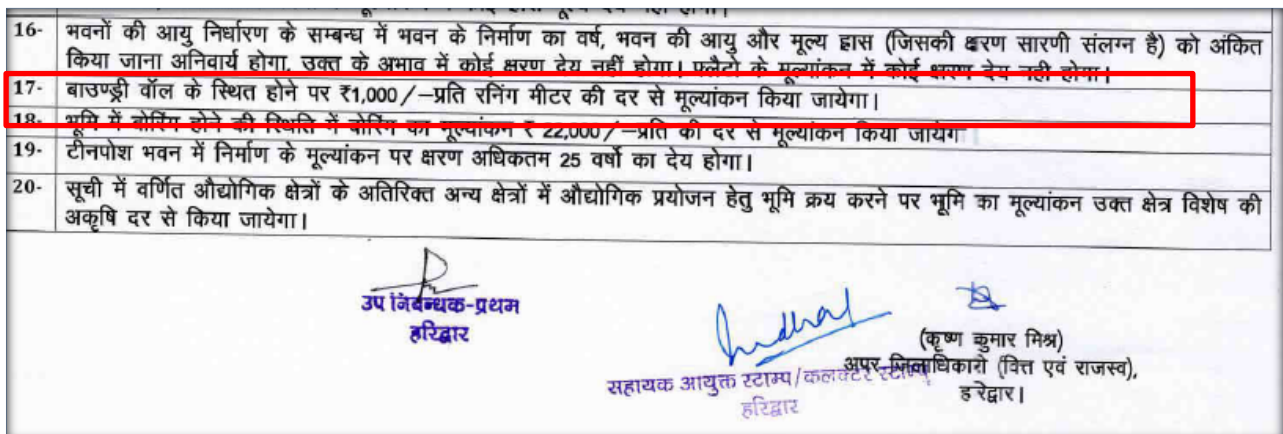 16- भवनों की आयु निर्धारण के सम्बन्ध में भवन के निर्माण का वर्ष, भवन की आयु और मूल्य ह्रास (जिसकी क्षरण सारणी संलग्न है) को अंकित
किया जाना अनिवार्य होगा, उक्त के अभाव में कोई क्षरण देय नहीं होगा। फ्लैटो के मूल्यांकन में कोई क्षरण देय नही होगा।
17- बाउण्ड्री वॉल के स्थित होने पर ₹1,000/-प्रति रनिंग मीटर की दर से मूल्यांकन किया जायेगा।
18- भूमि में बोरिंग होने की स्थिति में बोरिंग का मूल्यांकन ₹ 22,000/-प्रति की दर से मूल्यांकन किया जायेग
19- टीनपोश भवन में निर्माण के मूल्यांकन पर क्षरण अधिकतम 25 वर्षो का देय होगा।
20- सूची में वर्णित औद्योगिक क्षेत्रों के अतिरिक्त अन्य क्षेत्रों में औद्योगिक प्रयोजन हेतु भूमि क्रय करने पर भूमि का मूल्यांकन उक्त क्षेत्र विशेष की
अकृषि दर से किया जायेगा।
उप निबन्धक-प्रथम
हरिद्वार
(कृष्ण कुमार मिश्र)
अपर जिलाधिकारी (वित्त एवं राजस्व),
हरिद्वार।
सहायक आयुक्त स्टाम्प/कलक्टर स्टाम्प
हरिद्वार